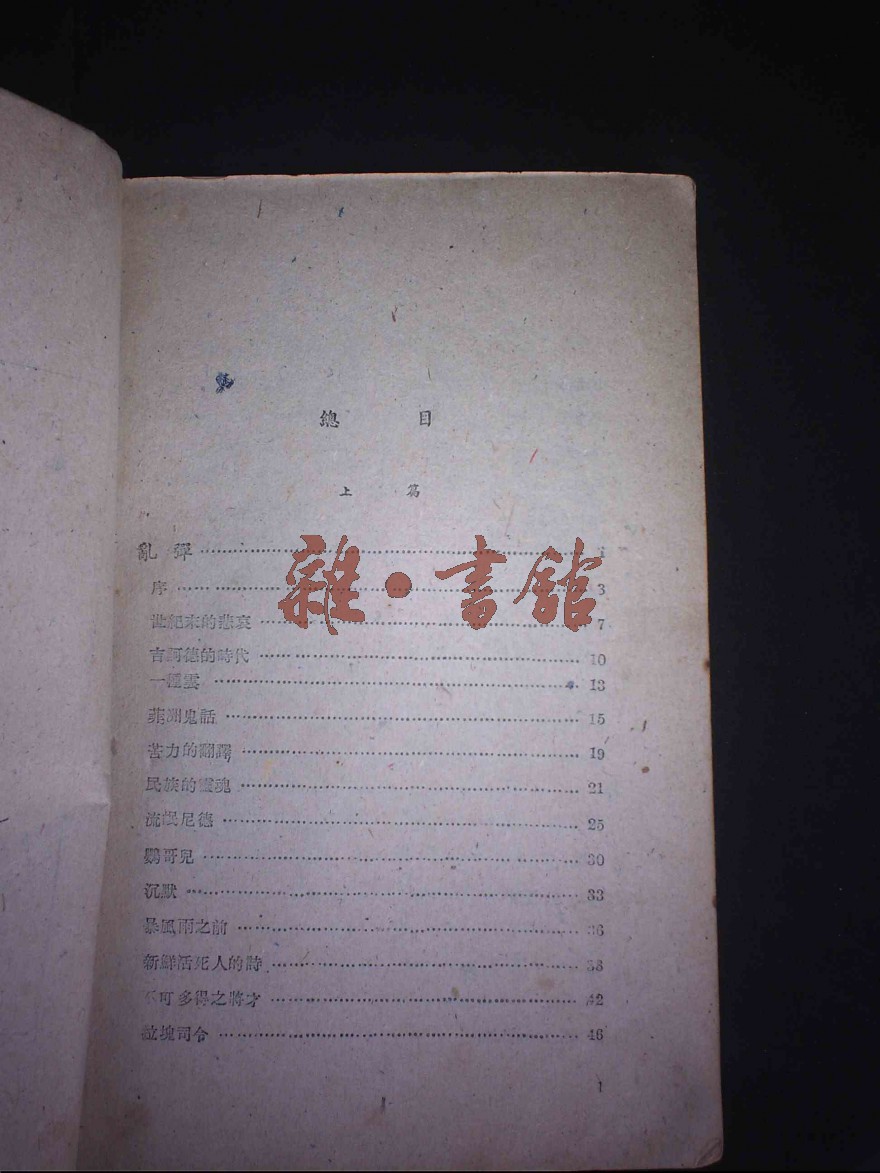 總目
上篇
亂彈 1
序 3
世紀末的悲哀 7
吉訶德的時代 10
一種雲 13
菲洲鬼話 15
苦力的翻譯 19
民族的靈魂 21
流氓尼德 25
鸚哥兒 30
沉默 33
暴風雨之前 36
新鮮活死人的詩 38
不可多得之將才 42
拉塊司令 46
1
雜·書館